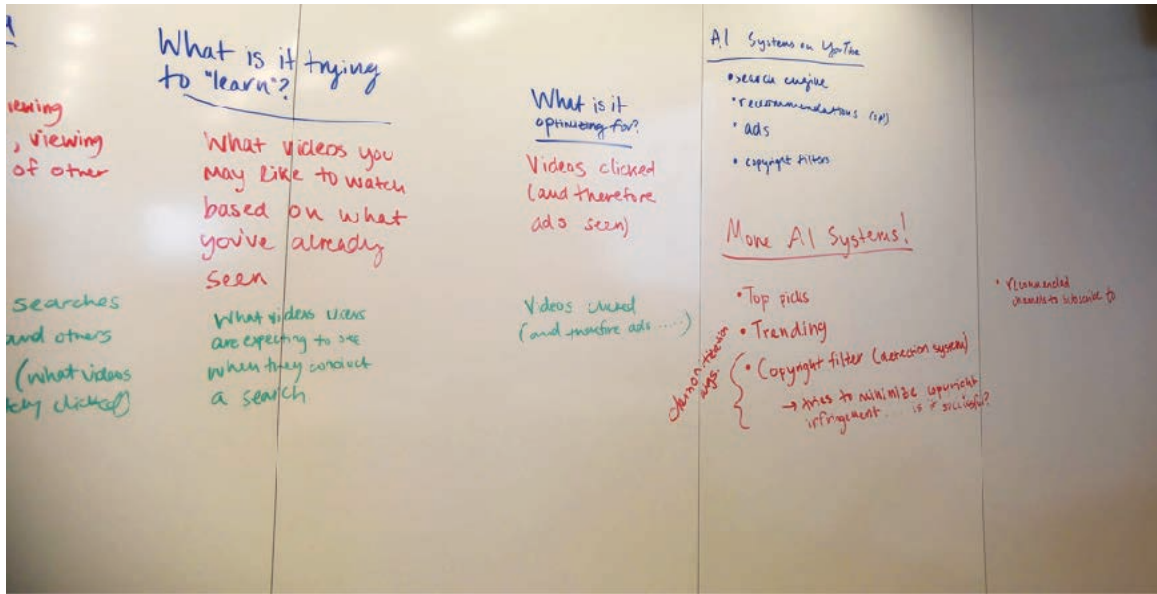 viewing
, viewing
of other
searches
and others
(what videos
clicked)
What is it trying
to "learn"?
What videos you
may like to watch
based on what
you've already
seen
What videos users
are expecting to see
when they conduct
a search
What is it
optimizing for?
Videos clicked
(and therefore
ads seen)
Videos clicked
(and therefore ads ......)
AI Systems on YouTube
• search engine
• recommendations
• ads
• copyright filters
More AI Systems!
• Top picks
• Trending
• Copyright filter (detection system)
→ tries to minimize copyright
infringement.... is it successful?
demonitization
args.
• recommended
channels to subscribe to